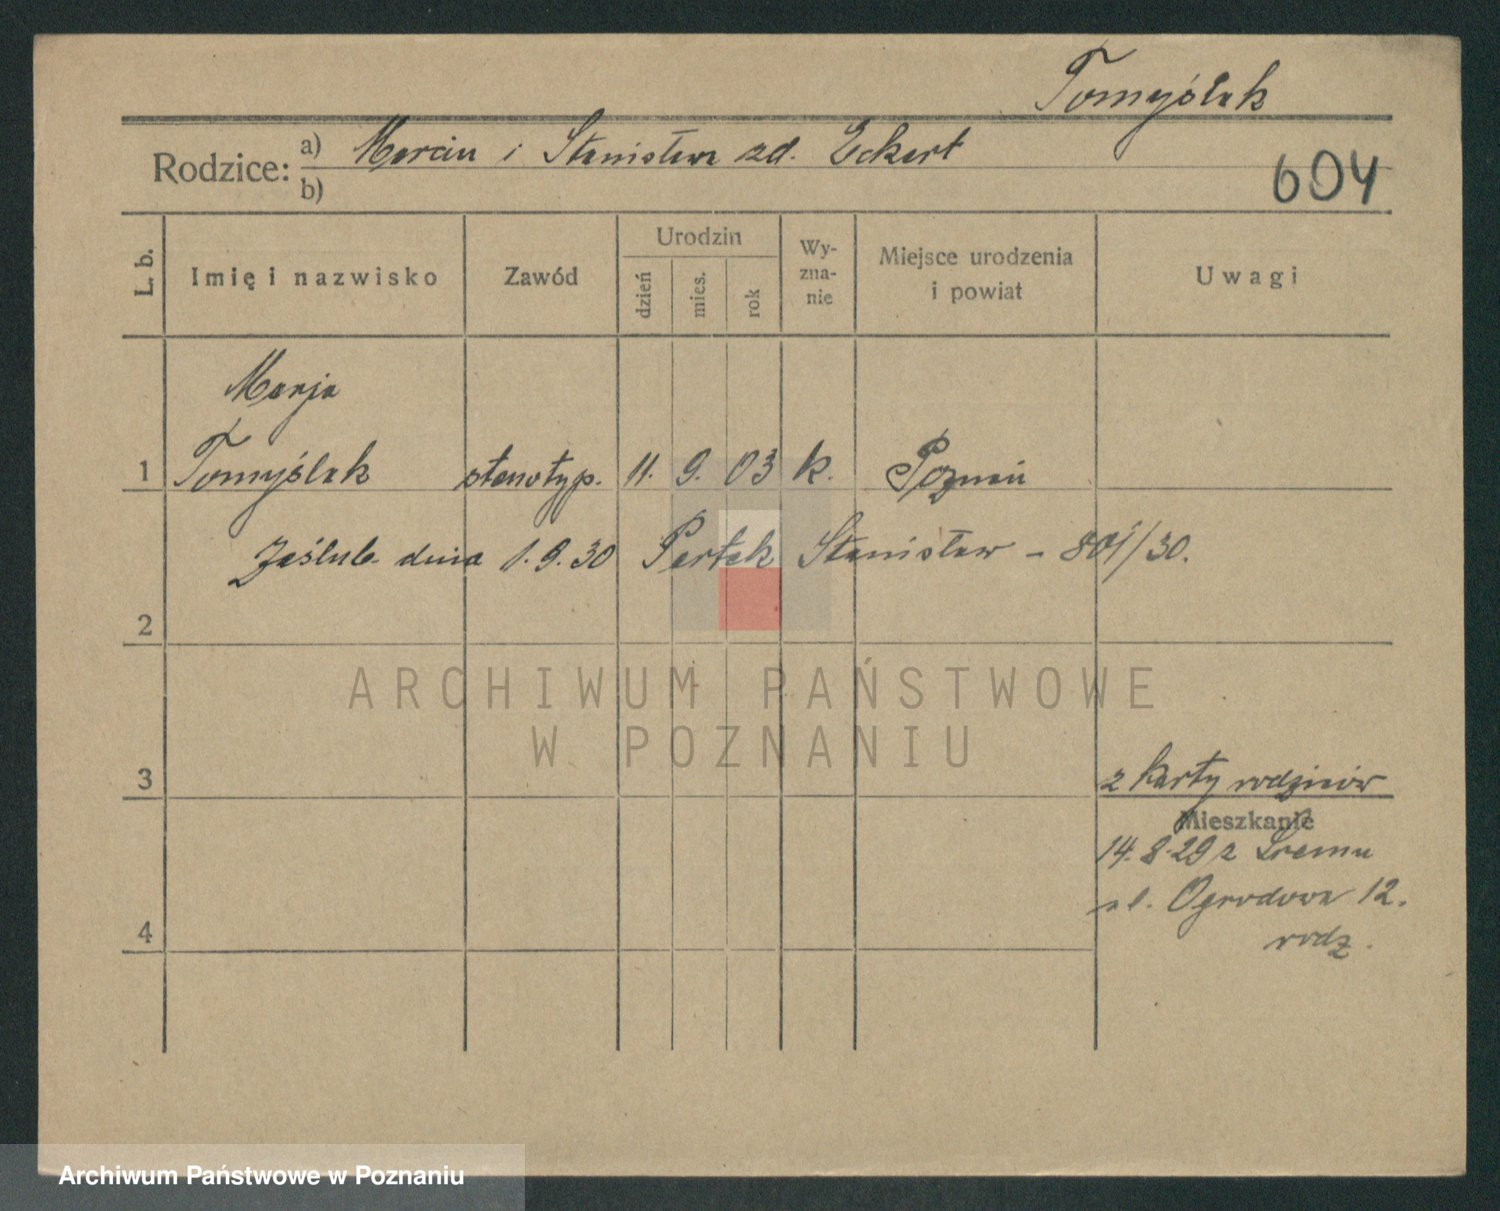 Tomyślak
Rodzice: a) Marcin i Stanisława zd. Eckert
b)
604
L. b. Imię i nazwisko Zawód Urodzin dzień mies. rok Wy-zna-nie Miejsce urodzenia i powiat Uwagi
Marja
1 Tomyślak stenotyp. 11. 9. 03 k. Poznań
Zaślub. dnia 1.9.30 Pertek Stanisław - 801/30.
2
ARCHIWUM PAŃSTWOWE
W POZNANIU
3 z karty rodziców
Mieszkanie
14.8.29 z Śremu
ul. Ogrodowa 12.
4 rodz.
Archiwum Państwowe w Poznaniu